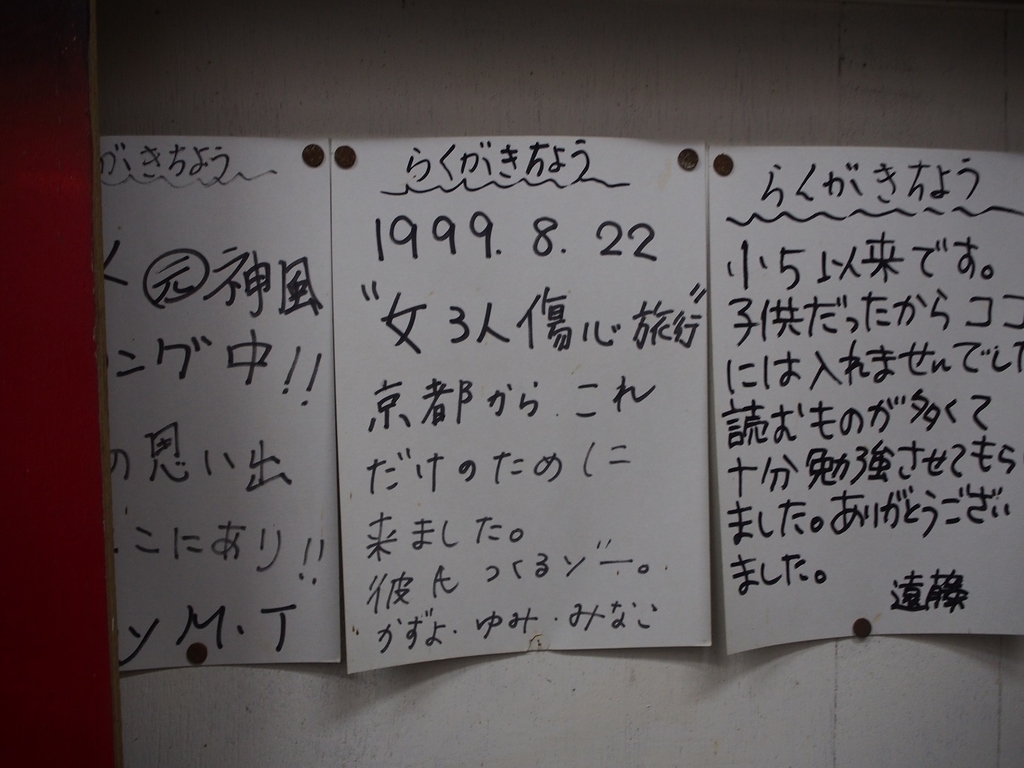 がきちょう
く 元 神風
ング中!!
の思い出
ここにあり!!
M・T
らくがきちょう
1999. 8. 22
"女3人傷心旅行"
京都から これ
だけのために
来ました。
彼氏 つくるゾー。
かずよ・ゆみ・みなこ
らくがきちょう
小5以来です。
子供だったからココ
には入れませんでした
読むものが多くて
十分勉強させてもらい
ました。ありがとうござい
ました。
遠藤